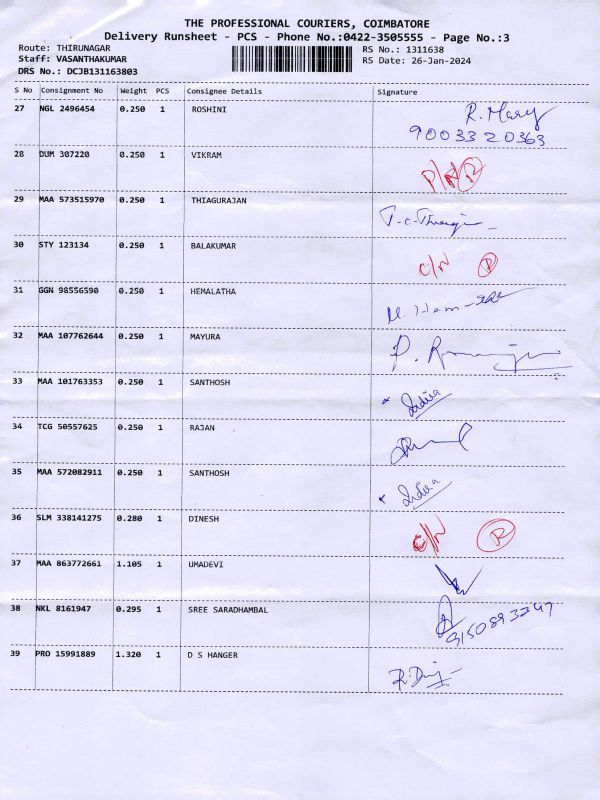 THE PROFESSIONAL COURIERS, COIMBATORE
Delivery Runsheet - PCS - Phone No.:0422-3505555 - Page No.:3
Route: THIRUNAGAR RS No.: 1311638
Staff: VASANTHAKUMAR RS Date: 26-Jan-2024
DRS No.: DCJB131163803
S No Consignment No Weight PCS Consignee Details Signature
27 NGL 2496454 0.250 1 ROSHINI R. Mary
9003320363
28 DUM 307220 0.250 1 VIKRAM P/N R
29 MAA 573515970 0.250 1 THIAGURAJAN
30 STY 123134 0.250 1 BALAKUMAR C/N R
31 GGN 98556590 0.250 1 HEMALATHA
32 MAA 107762644 0.250 1 MAYURA
33 MAA 101763353 0.250 1 SANTHOSH
34 TCG 50557625 0.250 1 RAJAN
35 MAA 572082911 0.250 1 SANTHOSH
36 SLM 338141275 0.280 1 DINESH C/N R
37 MAA 863772661 1.105 1 UMADEVI
38 NKL 8161947 0.295 1 SREE SARADHAMBAL
39 PRO 15991889 1.320 1 D S HANGER